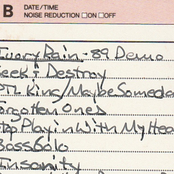 B DATE/TIME
NOISE REDUCTION □ON □OFF
Rain - 89 Demo
Seek & Destroy
King/Maybe Someday
Forgotten Ones
Playin With My Hea
Bass Solo
Insanity